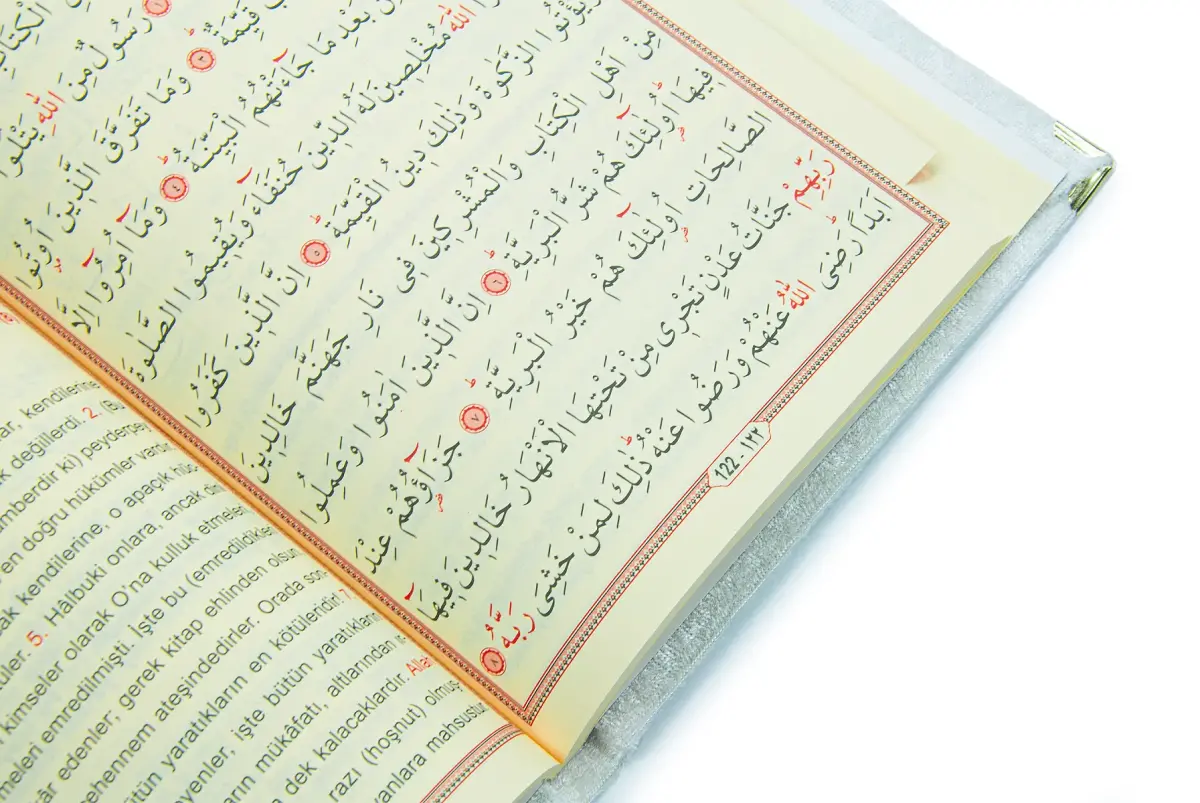 الْكِتَابِ
١ رَسُولٌ مِنَ اللّٰهِ يَتْلُوا
قَيِّمَةٌ ٣ وَمَا تَفَرَّقَ الَّذِينَ اُوتُوا
بَعْدِ مَا جَٓاءَتْهُمُ الْبَيِّنَةُ ٤ وَمَٓا اُمِرُٓوا اِلَّا
اللّٰهَ مُخْلِصِينَ لَهُ الدِّينَ حُنَفَٓاءَ وَيُقِيمُوا الصَّلٰوةَ
وَيُؤْتُوا الزَّكٰوةَ وَذٰلِكَ دِينُ الْقَيِّمَةِ ٥ اِنَّ الَّذِينَ كَفَرُوا
مِنْ اَهْلِ الْكِتَابِ وَالْمُشْرِكِينَ فِى نَارِ جَهَنَّمَ خَالِدِينَ
فِيهَا اُو۬لٰٓئِكَ هُمْ شَرُّ الْبَرِيَّةِ ٦ اِنَّ الَّذِينَ اٰمَنُوا وَعَمِلُوا
الصَّالِحَاتِ اُو۬لٰٓئِكَ هُمْ خَيْرُ الْبَرِيَّةِ ٧ جَزَٓاؤُ۬هُمْ عِنْدَ
رَبِّهِمْ جَنَّاتُ عَدْنٍ تَجْرِى مِنْ تَحْتِهَا الْاَنْهَارُ خَالِدِينَ فِيهَٓا
اَبَدًا رَضِىَ اللّٰهُ عَنْهُمْ وَرَضُوا عَنْهُ ذٰلِكَ لِمَنْ خَشِىَ رَبَّهُ ٨
122 - ١٢٢
kendilerine
değillerdi. 2. (Bu
ki) peyderpey
en doğru hükümler vardır
kendilerine, o apaçık
5. Hâlbuki onlara, ancak
kimseler olarak O'na kulluk etmeleri
emredilmişti. İşte bu (emredildikleri
edenler, gerek kitap ehlinden olsun
ateşindedirler. Orada
yaratıkların en kötüleridir. 7.
işte bütün yaratıkların
mükâfatı, altlarından
dek kalacaklardır. Allah
razı (hoşnut) olmuş
mahsustur